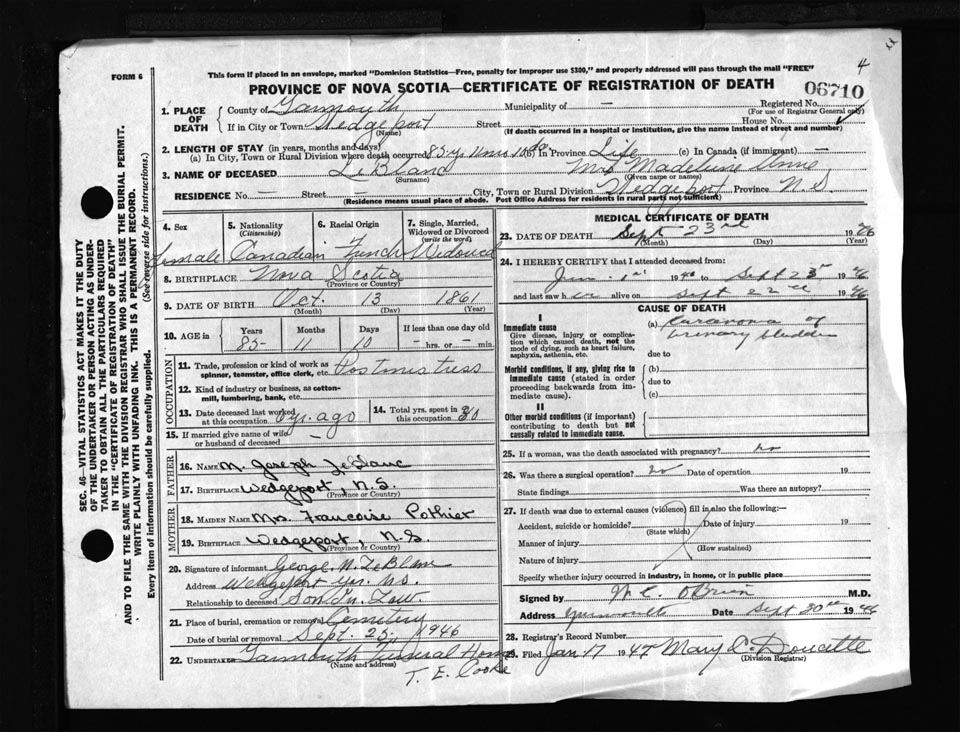 4
FORM 6
This form if placed in an envelope, marked "Dominion Statistics—Free, penalty for improper use $300," and properly addressed will pass through the mail "FREE"
PROVINCE OF NOVA SCOTIA—CERTIFICATE OF REGISTRATION OF DEATH
06710
1. PLACE OF DEATH
County of Yarmouth Municipality of — Registered No.
(For use of Registrar General only)
If in City or Town Wedgeport Street House No.
(Name) (If death occurred in a hospital or institution, give the name instead of street and number)
2. LENGTH OF STAY (in years, months and days)
(a) In City, Town or Rural Division where death occurred 85 yr 11 mo 10 da. (b) In Province Life (c) In Canada (if immigrant) —
3. NAME OF DECEASED LeBlanc Mrs Madeleine Anne
(Surname) (Given name or names)
RESIDENCE No. — Street City, Town or Rural Division Wedgeport Province N.S.
(Residence means usual place of abode. Post Office Address for residents in rural parts not sufficient)
SEC. 46—VITAL STATISTICS ACT MAKES IT THE DUTY
OF THE UNDERTAKER OR PERSON ACTING AS UNDER-
TAKER TO OBTAIN ALL THE PARTICULARS REQUIRED
IN THE "CERTIFICATE OF REGISTRATION OF DEATH"
AND TO FILE THE SAME WITH THE DIVISION REGISTRAR WHO SHALL ISSUE THE BURIAL PERMIT.
WRITE PLAINLY WITH UNFADING INK. THIS IS A PERMANENT RECORD.
Every item of information should be carefully supplied. (See reverse side for instructions.)
4. Sex 5. Nationality (Citizenship) 6. Racial Origin 7. Single, Married, Widowed or Divorced (write the word)
Female Canadian French Widowed
8. BIRTHPLACE Nova Scotia
(Province or Country)
9. DATE OF BIRTH Oct. 13 1861
(Month) (Day) (Year)
10. AGE in Years Months Days If less than one day old
85- 11 10 — hrs. or — min.
OCCUPATION
11. Trade, profession or kind of work as spinner, teamster, office clerk, etc. Postmistress
12. Kind of industry or business, as cotton-mill, lumbering, bank, etc.
13. Date deceased last worked at this occupation 6 yr. ago 14. Total yrs. spent in this occupation 30
15. If married give name of wife or husband of deceased —
FATHER
16. Name M. Joseph LeBlanc
17. Birthplace Wedgeport, N.S.
(Province or Country)
MOTHER
18. Maiden Name Mrs. Francoise Pothier
19. Birthplace Wedgeport, N.S.
(Province or Country)
20. Signature of informant George N. LeBlanc
Address Wedgeport Yar. N.S.
Relationship to deceased Son In Law
21. Place of burial, cremation or removal Cemetery
Date of burial or removal Sept. 25, 1946
22. Undertaker Yarmouth Funeral Home
(Name and address)
T. E. Cooke
MEDICAL CERTIFICATE OF DEATH
23. DATE OF DEATH Sept 23rd 1946
(Month) (Day) (Year)
24. I HEREBY CERTIFY that I attended deceased from:
1st 1946 to Sept 23rd 1946
and last saw her alive on Sept 22nd 1946
CAUSE OF DEATH
I
Immediate cause
Give disease, injury or complication which caused death, not the mode of dying, such as heart failure, asphyxia, asthenia, etc.
(a) Carcinoma of
urinary bladder
due to
Morbid conditions, if any, giving rise to immediate cause (stated in order proceeding backwards from immediate cause).
(b)
due to
(c)
II
Other morbid conditions (if important) contributing to death but not causally related to immediate cause.
25. If a woman, was the death associated with pregnancy? no
26. Was there a surgical operation? no Date of operation 19
State findings Was there an autopsy?
27. If death was due to external causes (violence) fill in also the following:
Accident, suicide or homicide? Date of injury 19
(State which)
Manner of injury
(How sustained)
Nature of injury
Specify whether injury occurred in industry, in home, or in public place
Signed by W. C. O'Brien M.D.
Address Yarmouth Date Sept 1946
28. Registrar's Record Number
29. Filed Jan 17 1947 Mary C. Doucette
(Division Registrar)